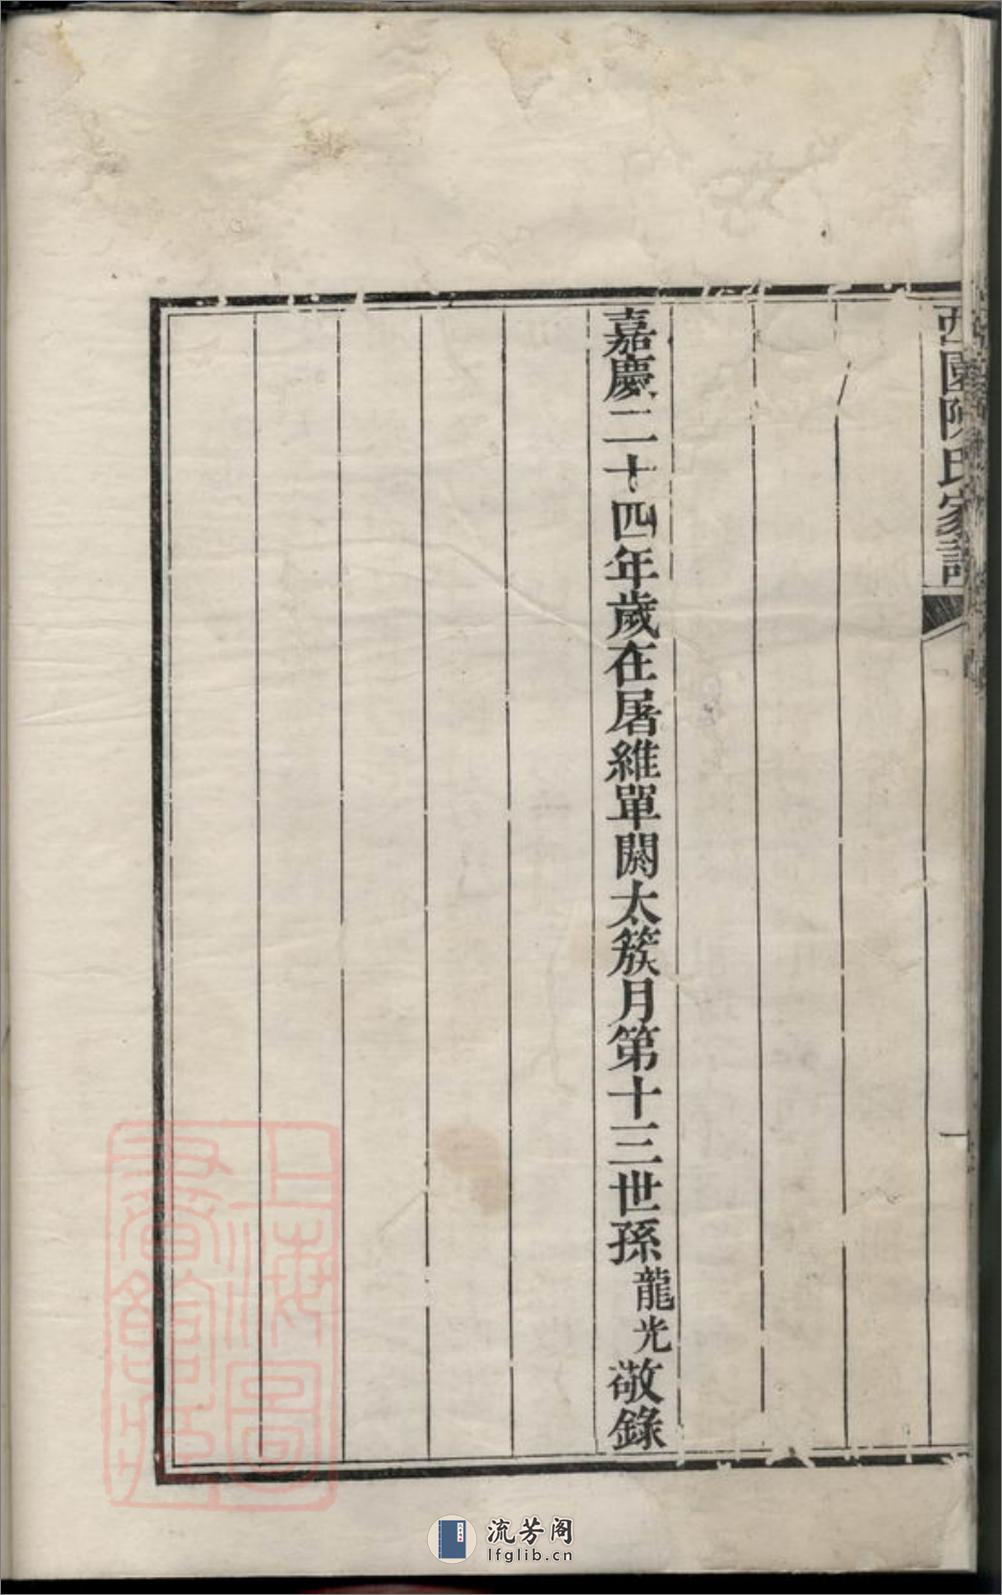 西園陳氏家譜
一
嘉慶二十四年歲在屠維單閼太簇月第十三世孫龍光敬錄
上海圖書館藏
流芳阁
lfglib.cn